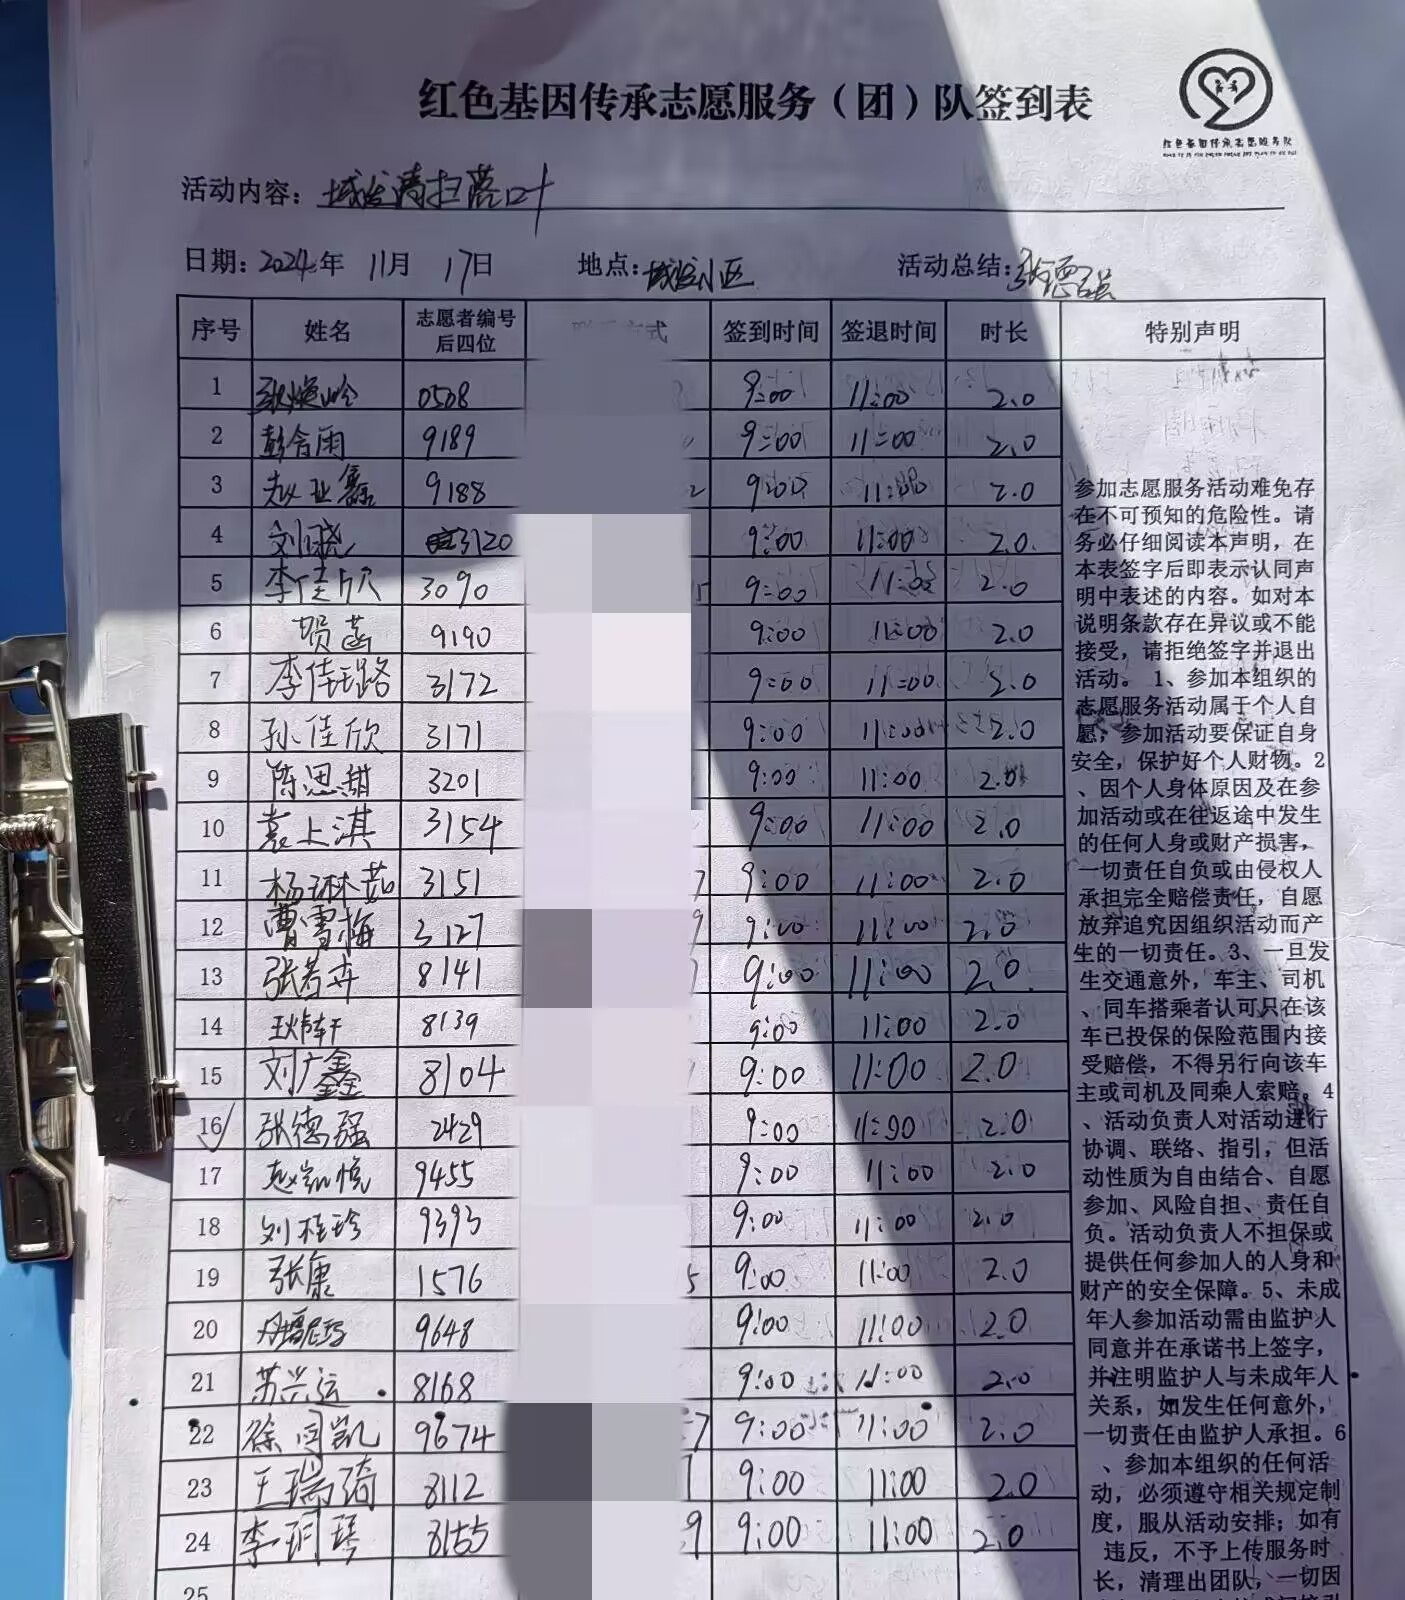 红色基因传承志愿服务（团）队签到表
红色基因传承志愿服务队
活动内容：城发清扫落叶
日期：2024年 11月 17日 地点：城发小区 活动总结：张德强
序号 姓名 志愿者编号后四位 式 签到时间 签退时间 时长 特别声明
1 张焕岭 0508 9:00 11:00 2.0
2 彭合雨 9189 9:00 11:00 2.0
3 赵亚磊 9188 9:00 11:00 2.0
4 刘晓 3120 9:00 11:00 2.0
5 李佳欣 3090 9:00 11:00 2.0
6 贾菡 9190 9:00 11:00 2.0
7 李佳璐 3172 9:00 11:00 2.0
8 孙佳欣 3171 9:00 11:00 2.0
9 陈思甜 3201 9:00 11:00 2.0
10 袁上淇 3154 9:00 11:00 2.0
11 杨琳茹 3151 9:00 11:00 2.0
12 曹雪梅 3127 9:00 11:00 2.0
13 张若卉 8141 9:00 11:00 2.0
14 8139 9:00 11:00 2.0
15 刘广鑫 8104 9:00 11:00 2.0
16 张德强 2429 9:00 11:00 2.0
17 赵凯悦 9455 9:00 11:00 2.0
18 刘桂珍 9393 9:00 11:00 2.0
19 张康 1576 9:00 11:00 2.0
20 9648 9:00 11:00 2.0
21 苏兴运 8168 9:00 11:00 2.0
22 徐闫凯 9674 7 9:00 11:00 2.0
23 王瑞琦 8112 9:00 11:00 2.0
24 李玥琴 8155 9 9:00 11:00 2.0
25
参加志愿服务活动难免存
在不可预知的危险性。请
务必仔细阅读本声明，在
本表签字后即表示认同声
明中表述的内容。如对本
说明条款存在异议或不能
接受，请拒绝签字并退出
活动。1、参加本组织的
志愿服务活动属于个人自
愿；参加活动要保证自身
安全，保护好个人财物。2
、因个人身体原因及在参
加活动或在往返途中发生
的任何人身或财产损害，
一切责任自负或由侵权人
承担完全赔偿责任，自愿
放弃追究因组织活动而产
生的一切责任。3、一旦发
生交通意外，车主、司机
、同车搭乘者认可只在该
车已投保的保险范围内接
受赔偿，不得另行向该车
主或司机及同乘人索赔。4
、活动负责人对活动进行
协调、联络、指引，但活
动性质为自由结合、自愿
参加、风险自担、责任自
负。活动负责人不担保或
提供任何参加人的人身和
财产的安全保障。5、未成
年人参加活动需由监护人
同意并在承诺书上签字，
并注明监护人与未成年人
关系，如发生任何意外，
一切责任由监护人承担。6
、参加本组织的任何活
动，必须遵守相关规定制
度，服从活动安排；如有
违反，不予上传服务时
长，清理出团队，一切因